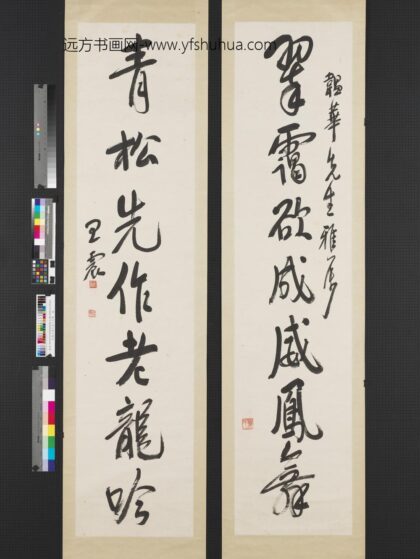 远方书画网-www.yfshuhua.com
韞華先生雅屬
翠靄欲成威鳳舞
青松先作老龍吟
王震